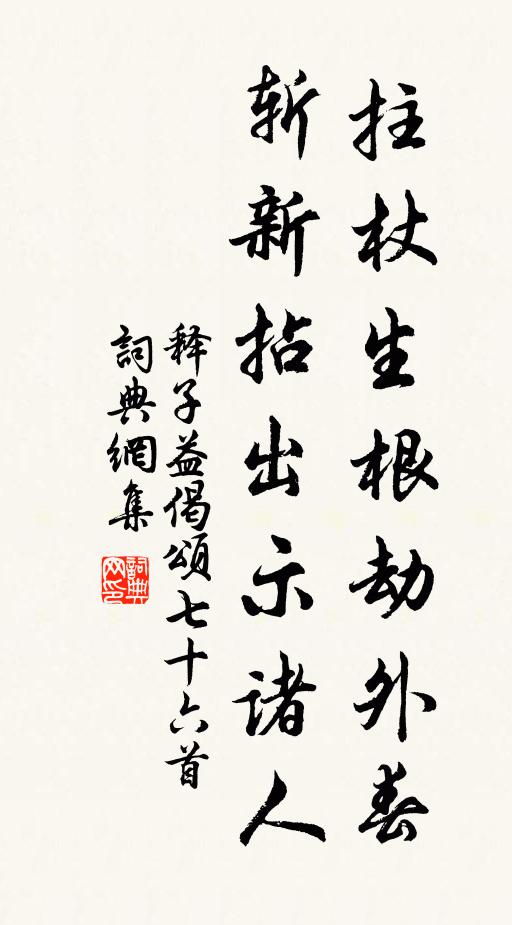 拄杖生根劫外春
斩新拈出示諸人
释子益偈頌七十六首
詞典網集
詞典网印